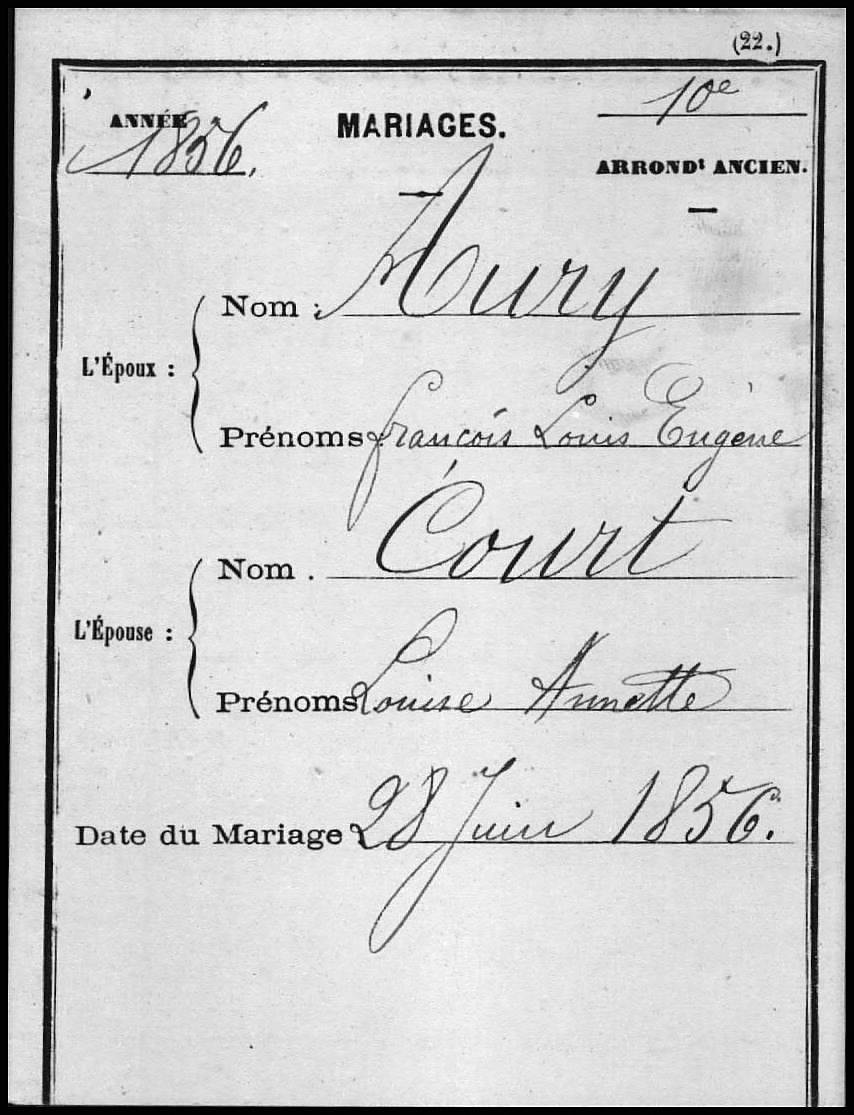 (22.)
ANNÉE 1856.
MARIAGES.
10e
ARRONDt ANCIEN.
L'Époux :
Nom : Aury
Prénoms François Louis Eugène
L'Épouse :
Nom . Court
Prénoms Louise Annette
Date du Mariage 28 Juin 1856.